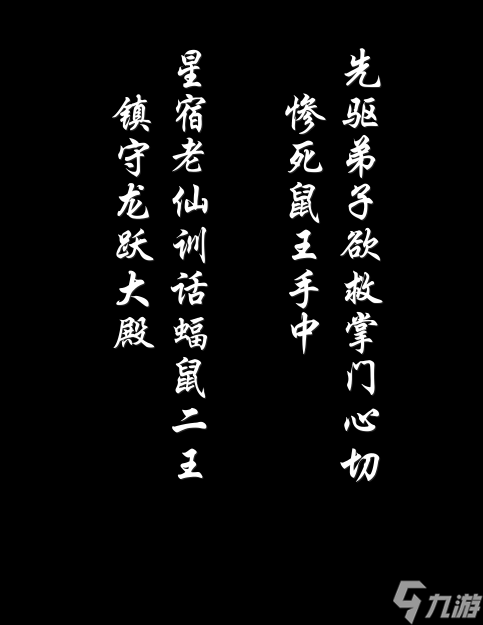 先驱弟子欲救掌门心切
惨死鼠王手中
星宿老仙训话蝠鼠二王
镇守龙跃大殿
九游